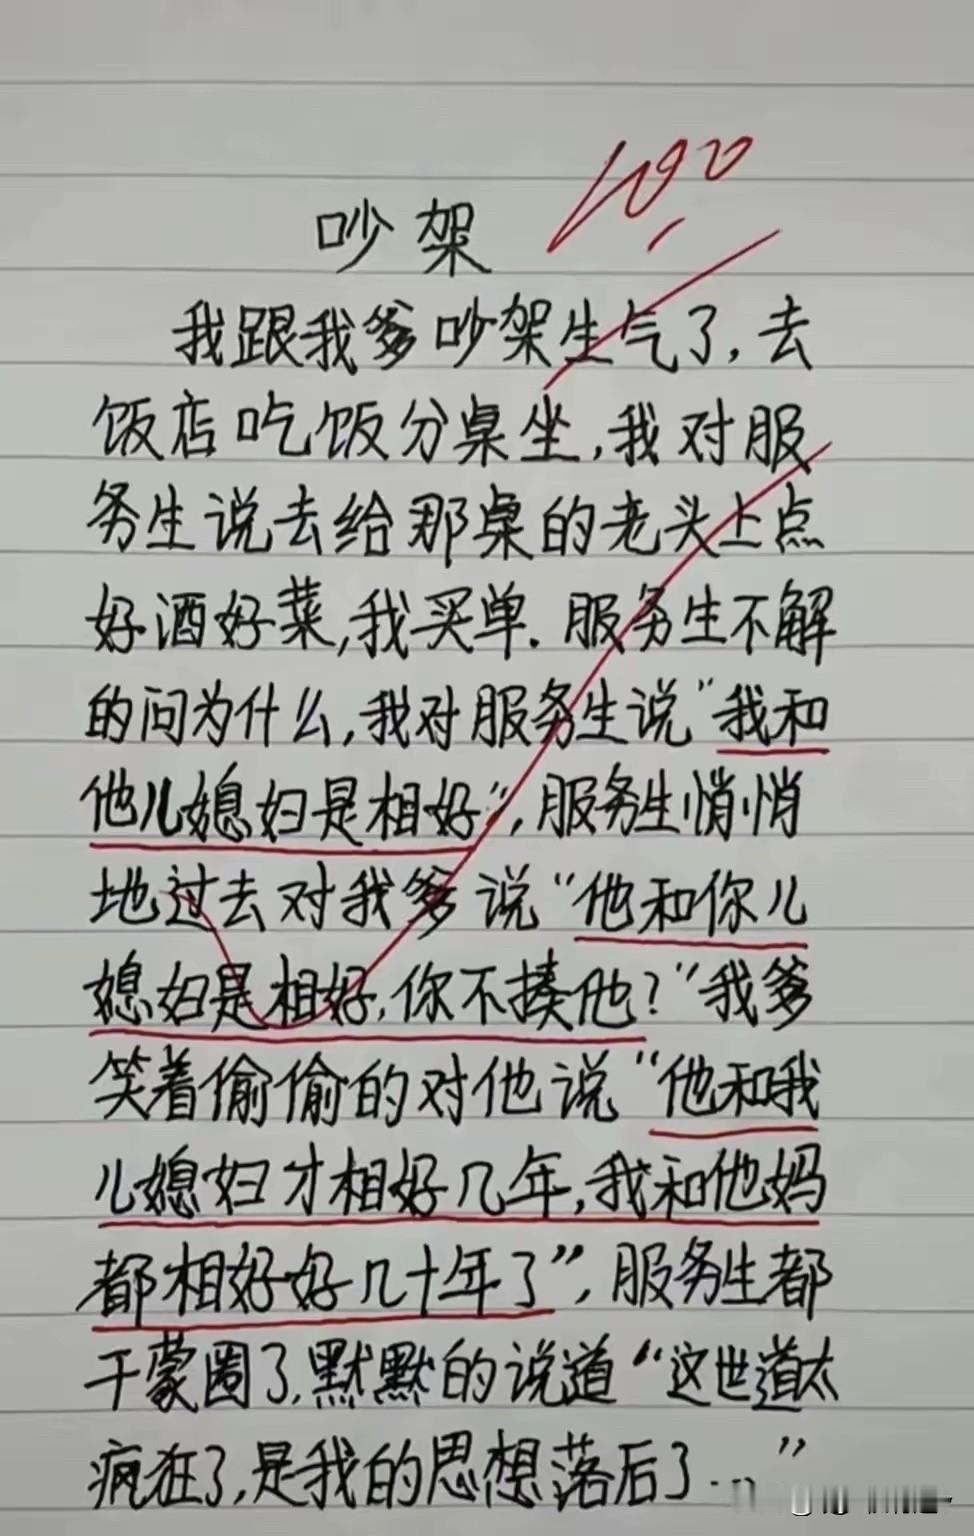 100
吵架
我跟我爹吵架生气了,去
饭店吃饭分桌坐,我对服
务生说去给那桌的老头上点
好酒好菜,我买单.服务生不解
的问为什么,我对服务生说"我和
他儿媳妇是相好",服务生悄悄
地过去对我爹说"他和你儿
媳妇是相好,你不揍他?"我爹
笑着偷偷的对他说"他和我
儿媳妇才相好几年,我和他妈
都相好好几十年了",服务生都
干蒙圈了,默默的说道"这世道太
疯狂了,是我的思想落后了...."